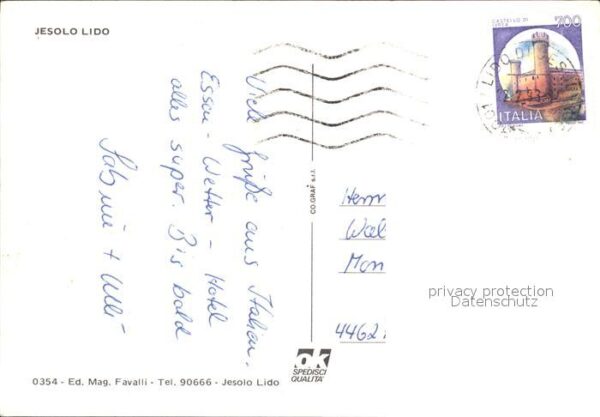 JESOLO LIDO
CASTELLO DI
IVREA
700
ITALIA
LIDO DI JES
Viele Grüße aus Italien.
Essen - Wetter - Hotel
alles super. Bis bald
Sabine + Ulli
CO.GRAF s.r.l.
Herrn
Wal
Mon
4462
privacy protection
Datenschutz
ok
SPEDISCI
QUALITA'
0354 - Ed. Mag. Favalli - Tel. 90666 - Jesolo Lido